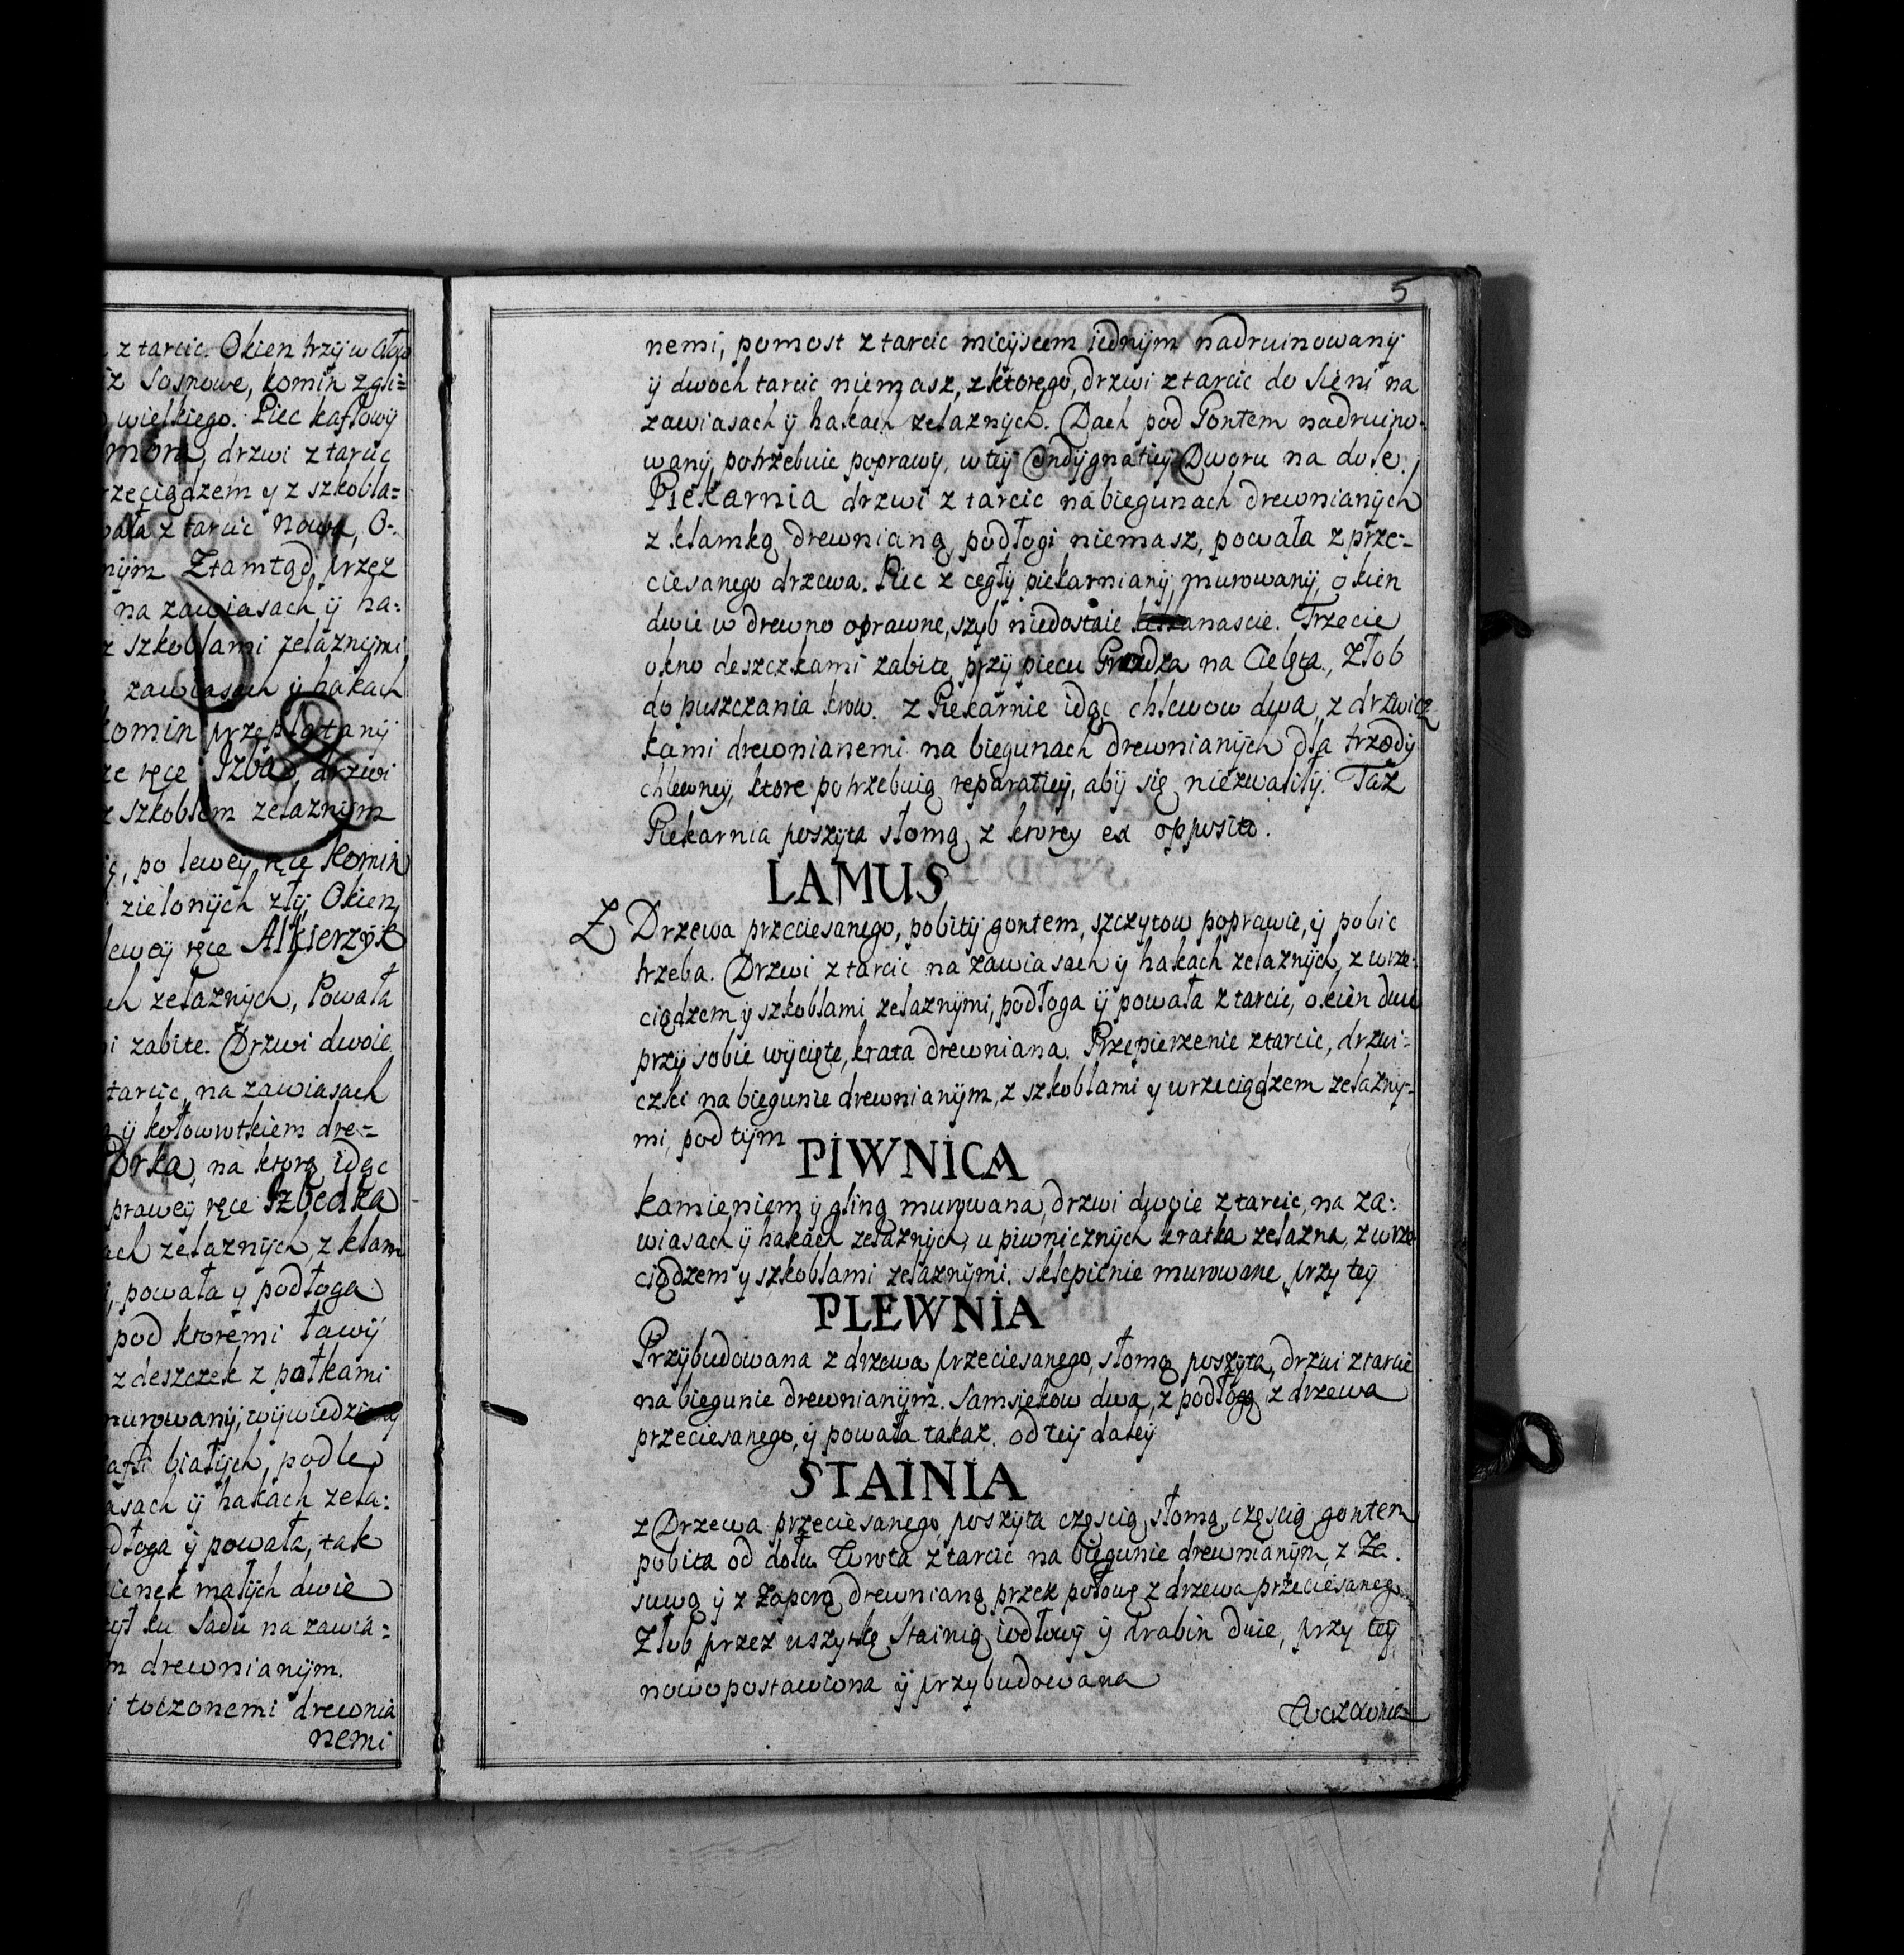 z tarcic. Okien trzy w
Sosnowe, komin z gli=
wielkiego. Piec kaflowÿ
drzwi z tarcic
rzeciądzem y z szkobla=
z tarcic nowa, O-
Ztamtąd przez
na zawiasach ÿ ha=
szkoblami zelaznymi
zawiasach ÿ hakach
komin przeplatanÿ
ręce Izba drzwi
z szkoblem zelaznÿm
po lewey ręce Komin
zielonÿch złÿ, Okien
lewey ręce Alkierzÿk
zelaznÿch, Powała
zabite. Drzwi dwoie
tarcic, na zawiasach
ÿ kołowrotkiem dre=
na ktorą idąc
prawey ręce Izbedka
zelaznÿch, z klam
powała y podłoga
pod ktoremi ławÿ
z deszczek z pałkami
murowanÿ,
białÿch, podle
ÿ hakach zela=
ÿ powała, tak
małÿch dwie
ku Sadu na zawia=
drewnianÿm.
toczonemi drewnia
nemi
5
nemi, pomost z tarcic mieÿscem iednÿm nadruinowanÿ
ÿ dwoch tarcic niemasz, z ktorego, drzwi z tarcic do Sieni na
zawiasach ÿ hakach zelaznÿch. Dach pod Gontem nadruino-
wanÿ potrzebuie poprawÿ, w teÿ Dworu na dole.
Piekarnia drzwi z tarcic na biegunach drewnianÿch
z klamką drewnianą, podłogi niemasz, powała z prze-
ciesanego drzewa. Piec z cegłÿ piekarnianÿ, murowanÿ, okien
dwie w drewno oprawne, szÿb niedostaie. Trzecie
okno deszczkami zabite, przÿ piecu Grzodka na Cielęta, Złob
do puszczania krow. z Piekarnie idąc chlewow dwa, z drzwicz
kami drewnianemi na biegunach drewnianÿch dla trzodÿ
chlewneÿ, ktore potrzebuią reparatieÿ, abÿ się niezwalilÿ. Taz
Piekarnia poszyta słomą, z ktorey ex opposito.
LAMUS
Z Drzewa przeciesanego, pobitÿ gontem, szczytow poprawic, ÿ pobic
trzeba. Drzwi z tarcic na zawiasach ÿ hakach zelaznÿch, z wrze-
ciądzem ÿ szkoblami zelaznÿmi, podłoga ÿ powała z tarcic, okien dwie
przÿ sobie wÿcięte, krata drewniana. Przepierzenie z tarcic, drzwi=
czki na biegunie drewnianÿm, z szkoblami y wrzeciądzem zelazny-
mi, pod tÿm
PIWNICA
Kamieniem ÿ gliną murowana, drzwi dwoie z tarcic, na za=
wiasach ÿ hakach zelaznÿch, u piwnicznÿch kratka zelazna, z wrze
ciądzem y szkoblami zelaznÿmi. sklepienie murowane, przy teÿ
PLEWNIA
Przÿbudowana z drzewa przeciesanego, słomą poszÿta, drzwi z tarcic
na biegunie drewnianÿm. Samsiekow dwa, z podłogą z drzewa
przeciesanego, ÿ powała takaz. od teÿ daleÿ
STAINIA
z Drzewa przeciesanego poszyta częscią słomą, częscią gontem
pobita od dołu Wrota z tarcic na biegunie drewnianÿm, z Za-
suwą ÿ z Zaporą drewnianą przez połowę z drzewa przeciesaneg
Złob przez wszytkę Stainią iodłowÿ ÿ drabin dwie, przy teÿ
nowo postawiona ÿ przybudowana
Wozownia